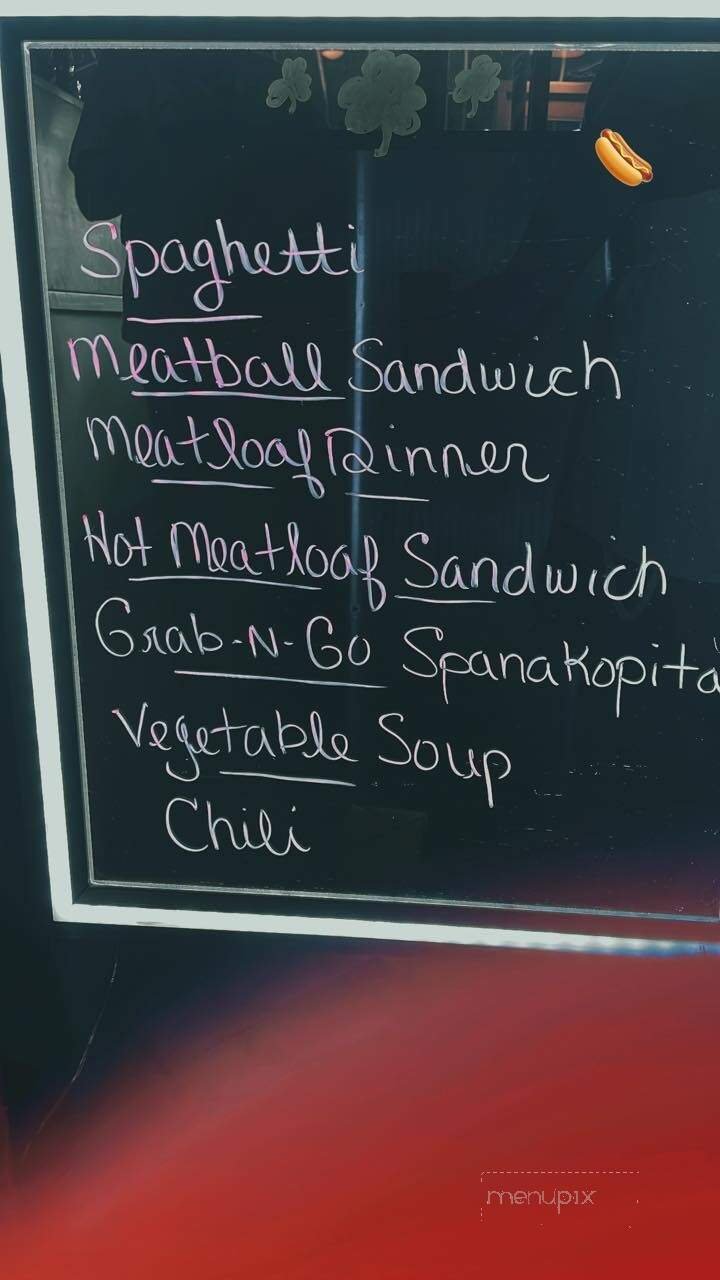 Spaghetti
Meatball Sandwich
Meatloaf Dinner
Hot Meatloaf Sandwich
Grab-N-Go Spanakopita
Vegetable Soup
Chili
menupix